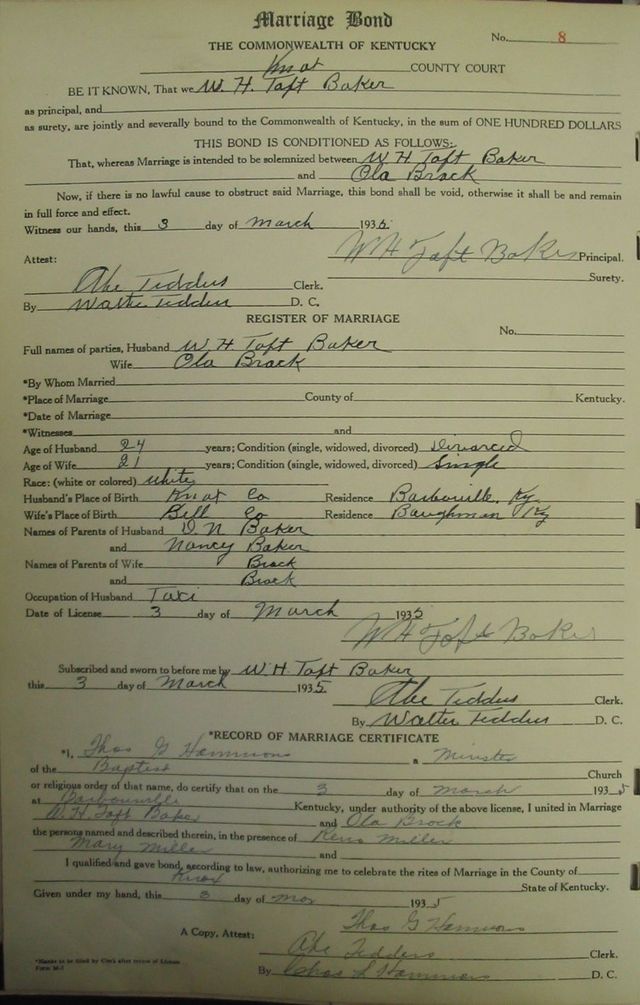 Marriage Bond
No. 8
THE COMMONWEALTH OF KENTUCKY
Knox COUNTY COURT
BE IT KNOWN, That we W. H. Taft Baker
as principal, and
as surety, are jointly and severally bound to the Commonwealth of Kentucky, in the sum of ONE HUNDRED DOLLARS
THIS BOND IS CONDITIONED AS FOLLOWS:
That, whereas Marriage is intended to be solemnized between W H Taft Baker
and Ola Brock
Now, if there is no lawful cause to obstruct said Marriage, this bond shall be void, otherwise it shall be and remain
in full force and effect.
Witness our hands, this 3 day of March 1935
W H Taft Baker Principal.
Attest:
Surety.
Abe Tedders Clerk.
By Walter Tedders D. C.
REGISTER OF MARRIAGE
No.
Full names of parties, Husband W H Taft Baker
Wife Ola Brock
*By Whom Married
*Place of Marriage County of Kentucky.
*Date of Marriage
*Witnesses and
Age of Husband 24 years; Condition (single, widowed, divorced) Divorced
Age of Wife 21 years; Condition (single, widowed, divorced) Single
Race: (white or colored) white
Husband's Place of Birth Knox Co Residence Barbourville, Ky
Wife's Place of Birth Bell Co Residence Baughman Ky
Names of Parents of Husband D. N Baker
and Nancy Baker
Names of Parents of Wife Brock
and Brock
Occupation of Husband Taxi
Date of License 3 day of March 1935
W H Taft Baker
Subscribed and sworn to before me by W. H. Taft Baker
this 3 day of March 1935
Abe Tedders Clerk.
By Walter Tedders D. C.
*RECORD OF MARRIAGE CERTIFICATE
*I, Thos G Hammons a Minister
of the Baptist Church
or religious order of that name, do certify that on the 3 day of March 1935
at Barbourville Kentucky, under authority of the above license, I united in Marriage
W. H. Taft Baker and Ola Brock
the persons named and described therein, in the presence of Miller
Mary Miller and
I qualified and gave bond, according to law, authorizing me to celebrate the rites of Marriage in the County of
Knox State of Kentucky.
Given under my hand, this 3 day of Mar 1935
Thos G Hammons
A Copy, Attest:
Abe Tedders Clerk.
By Chas S Hammons D. C.
*Blanks to be filled by Clerk after return of License